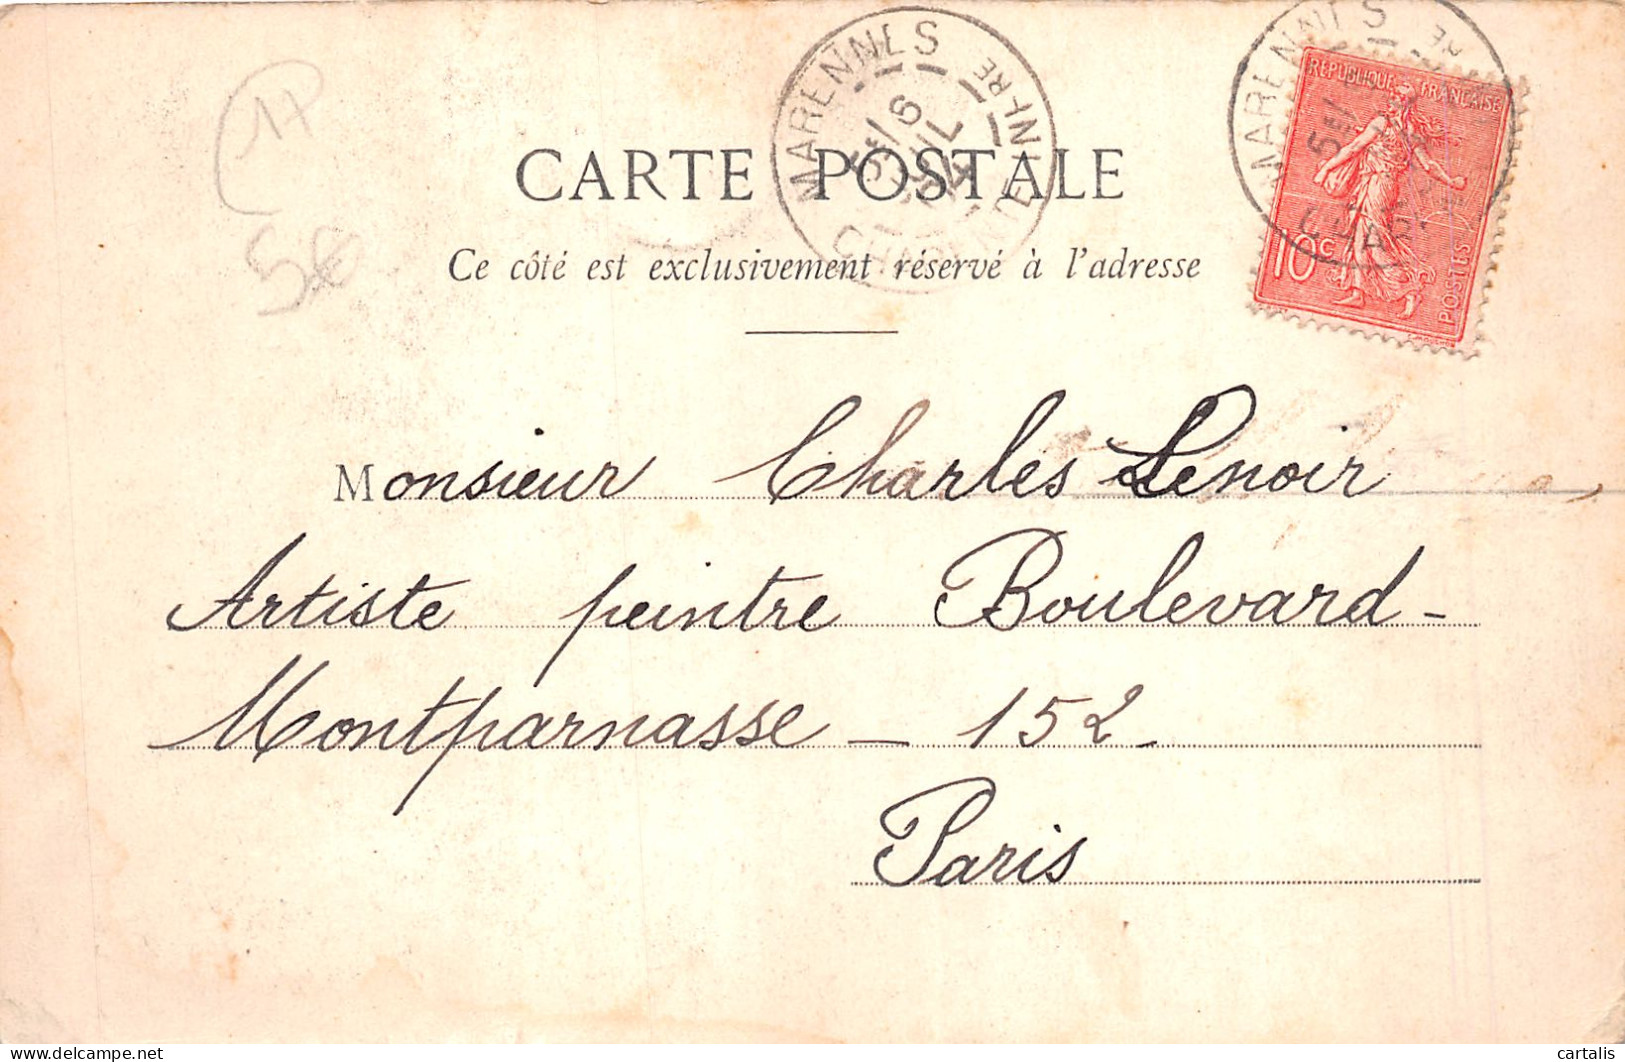 17
5€
MARENNES
CHARENTE INFRE
5E/ 6
JUIL
MARENNES
5E/
RÉPUBLIQUE FRANÇAISE
10c
POSTES
CARTE POSTALE
Ce côté est exclusivement réservé à l'adresse
Monsieur Charles Lenoir
Artiste peintre Boulevard-
Montparnasse - 152-
Paris
delcampe.net
cartalis